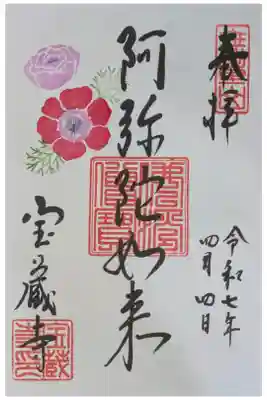 奉拝
令和七年
四月四日
阿弥陀如来
宝蔵寺